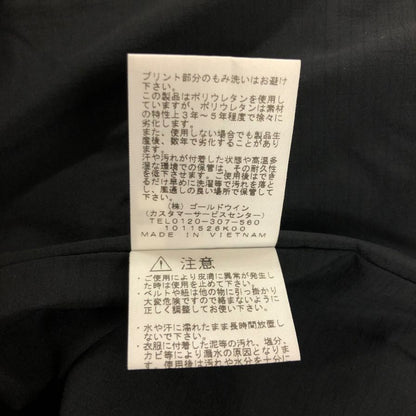 プリント部分のもみ洗いはお避け
下さい。
この製品はポリウレタンを使用し
ていますが、ポリウレタンは素材
の特性上3年～5年程度で徐々に
劣化します。
また、使用しない場合でも製品生
産後、数年で劣化することがあり
ます。
汗や汚れが付着した状態や高温多
湿な環境下での保管は、その耐久性
を低下させます。ご使用後はでき
るだけ早めに洗濯等で汚れを落と
し、風通しの良い場所で保管して
下さい。
(株) ゴールドウイン
(カスタマーサービスセンター)
TEL0120-307-560
1011526K00
MADE IN VIETNAM
注意
・ご使用により皮膚に異常が発生し
た時は使用を止めて下さい。
・ベルトや紐は他の物に引っ掛かり
大変危険ですので絡まないように
正しく調整してお使い下さい。
・水や汗に濡れたまま長時間放置し
ないで下さい。
・衣服に付着した泥等の汚れ、塩分、
カビ等により撥水の原因となりま
す。ご使用後は汚れや水分を十分に